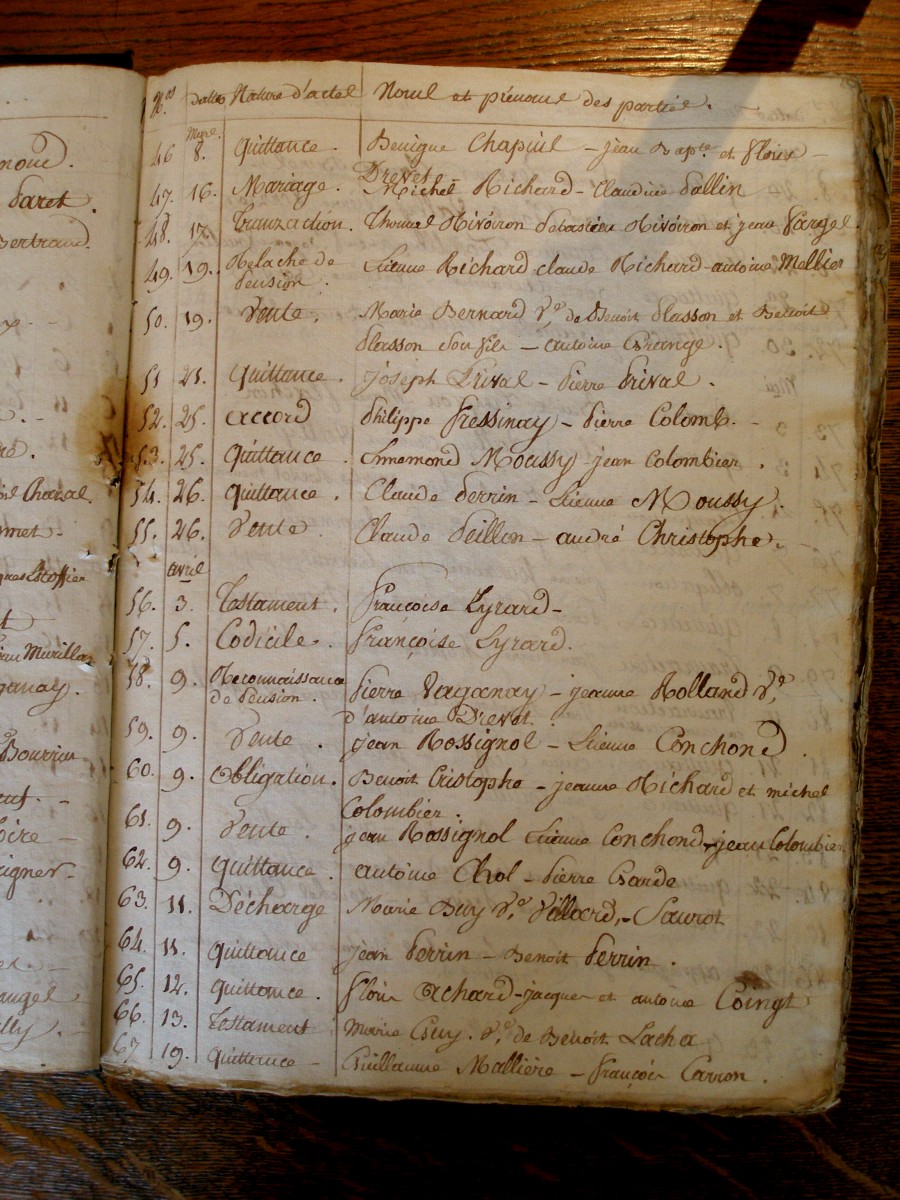 moud.
Paret.
Bertrand.
Chazal.
Murillon
ganay.
Bourrin
oire
eigner.
angel
illy.
N.os datte Nature d'actes Noms et prénoms des parties.
Mars.
46 8. Quittance. Benigne Chapuis - jean Bapte et Floris
Drevet
47. 16. Mariage. Michel Richard - Claudine Pallin
48. 17. Tranzaction. Thomas Rivoiron Sebastien Rivoiron et jean Fargel.
49. 19. Relache de Etienne Richard claude Richard - antoine Mellier
Pension.
50. 19. Vente. Marie Bernard Ve. de Benoit Plasson et Benoit
Plasson son fils - antoine Grange.
51 21. Quittance. joseph Prival - Pierre Prival.
52. 25. accord Philippe Fressinay - Pierre Colomb.
53. 25. Quittance. Ennemond Moussy - jean Colombier.
54. 26. Quittance. Claude Perrin - Etienne Moussy.
55. 26. Vente. Claude Peillon - andré Christophe.
avril
56. 3. Testament. Françoise Eyrard -
57. 5. Codicile. Françoise Eyrard.
58. 9. Reconnaissance Pierre Vaganay - jeanne Rolland Ve.
de Pension. d'antoine Drevet.
59. 9. Vente. jean Rossignol - Etienne Conchond.
60. 9. Obligation. Benoit Cristophe - jeanne Richard et michel
Colombier.
61. 9. Vente. jean Rossignol Etienne Conchond - jean Colombier
62. 9. Quittance. antoine Chol - Pierre Garde
63. 11. Décharge Marie Buy Ve. Villard, - Saurot
64. 11. Quittance jean Perrin - Benoit Perrin.
65. 12. Quittance. Floris Achard - jacques et antoine Coingt
66. 13. Testament Marie Guy. Ve. de Benoit Lacha
67 19. Quittance - Guillaume Mallière - François Carron.